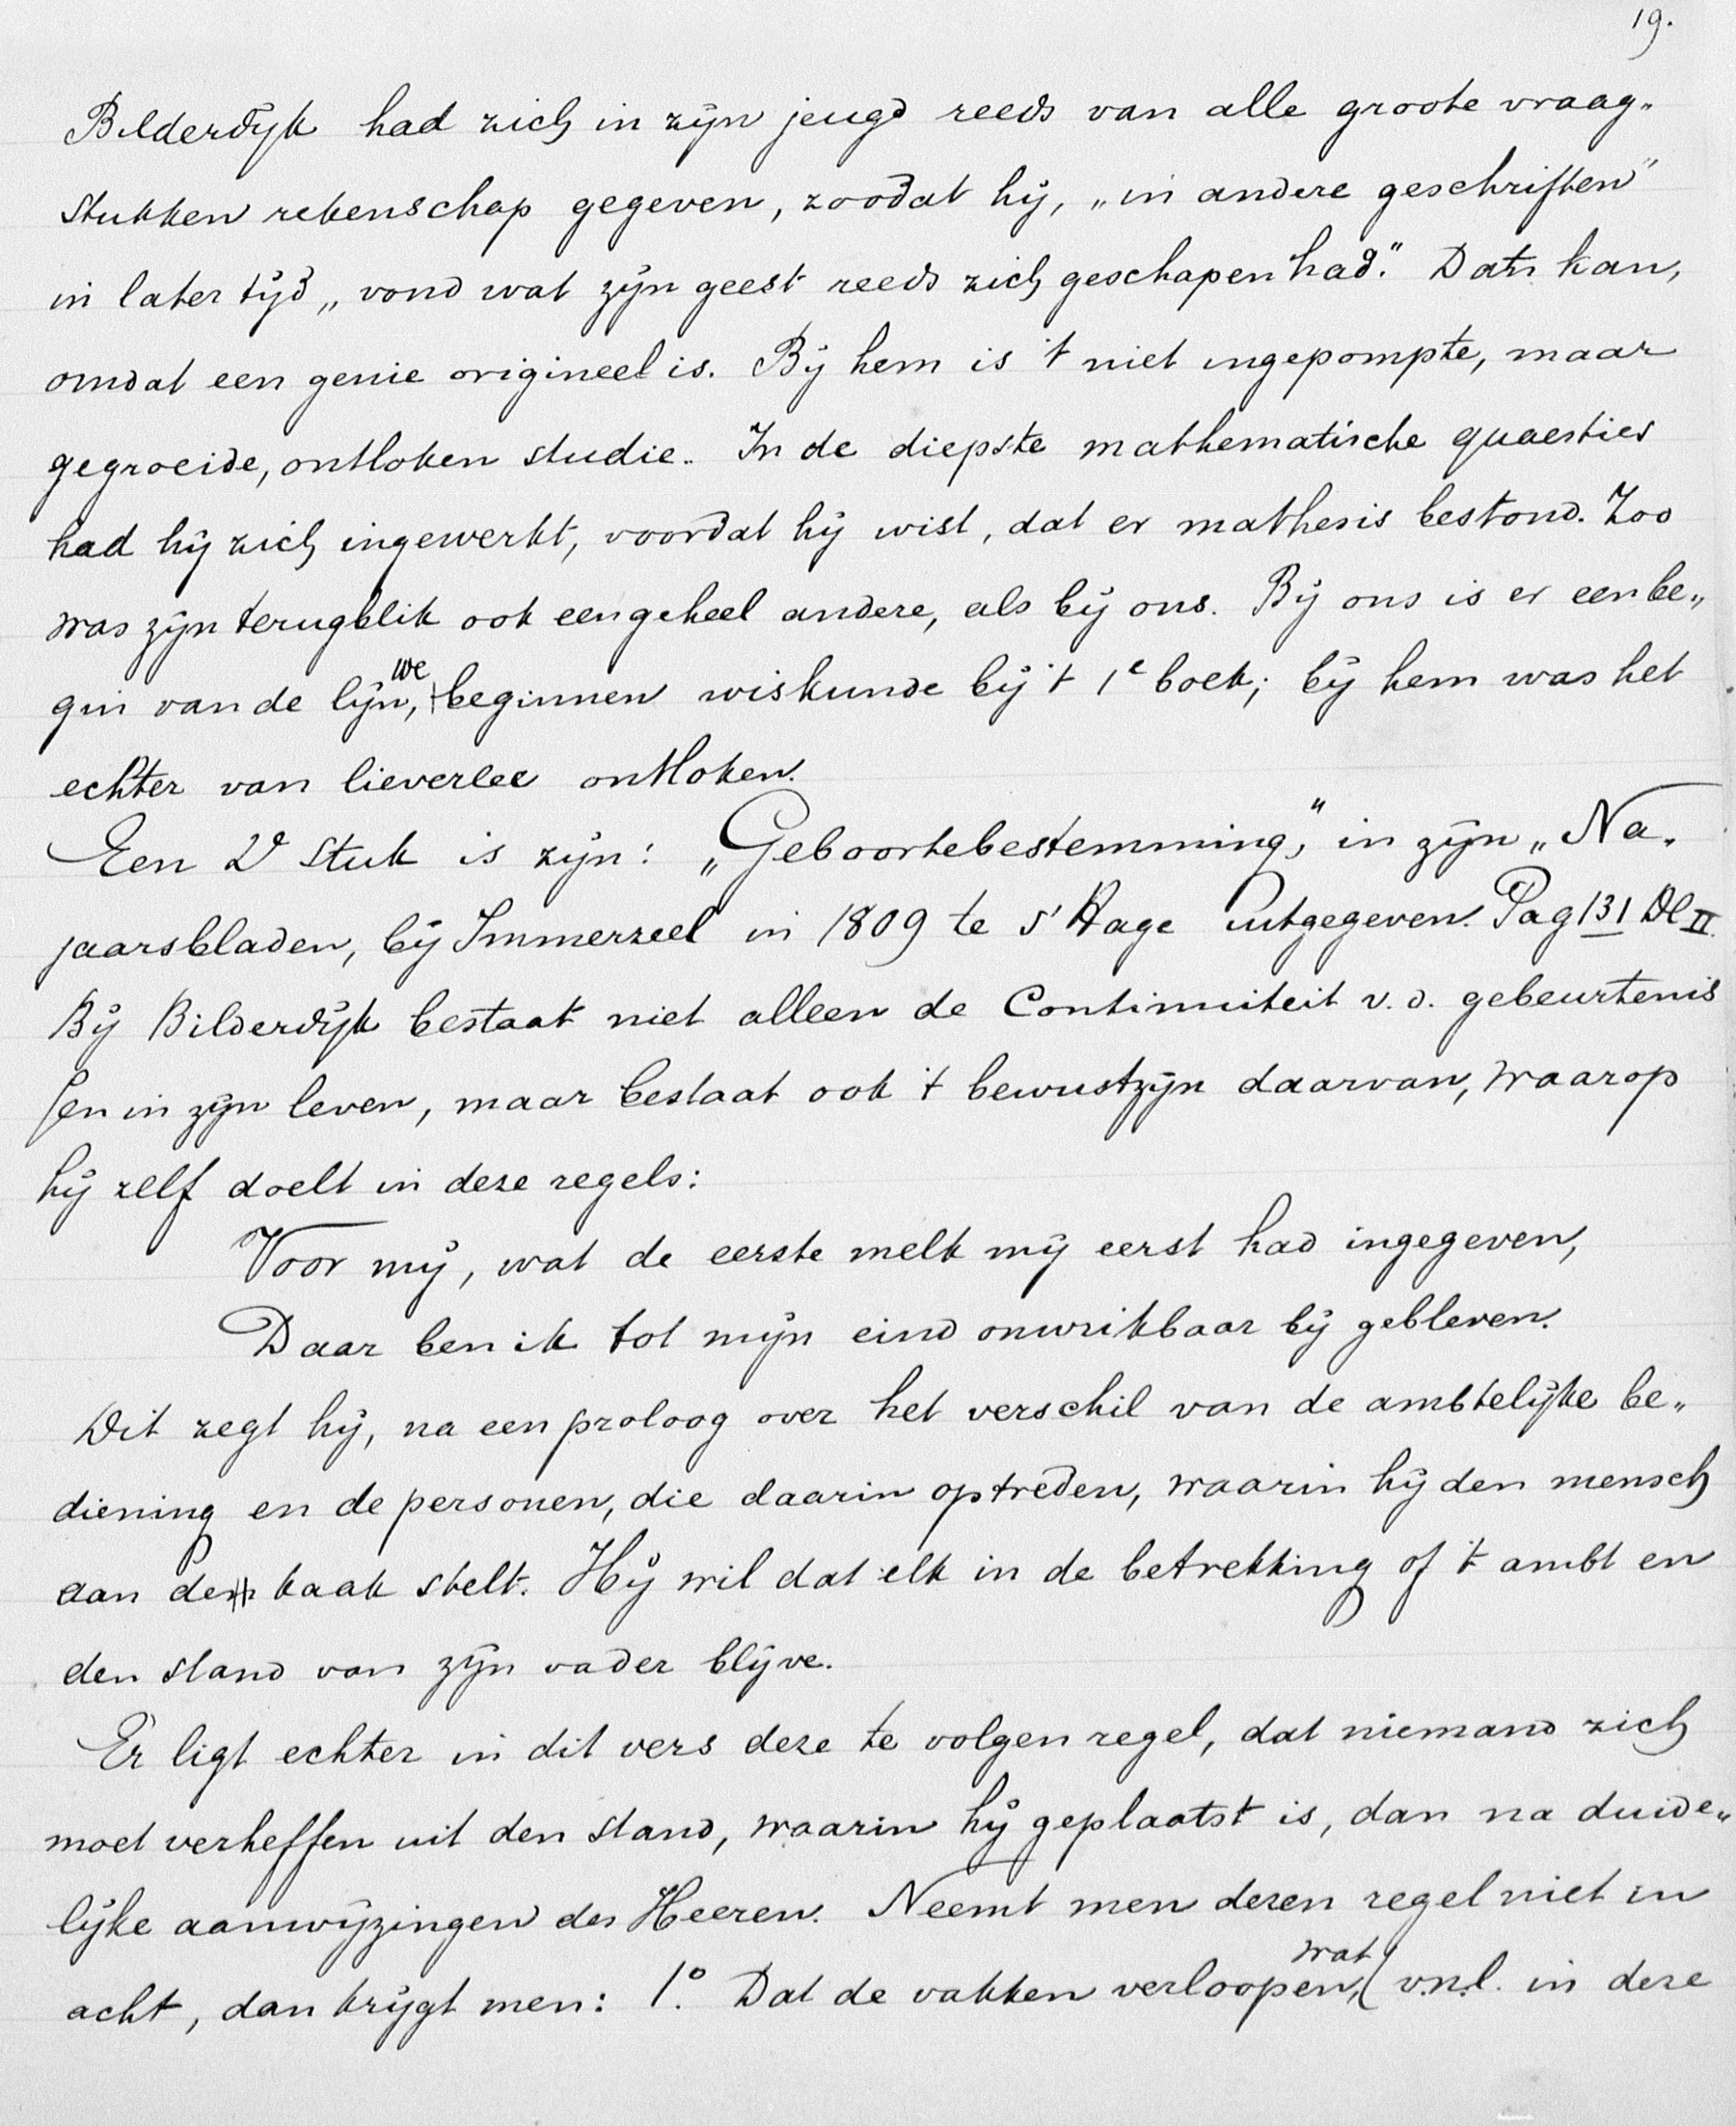 19.
Bilderdijk had zich in zijn jeugd reeds van alle groote vraag„
stukken rekenschap gegeven, zoodat hij, „in andere geschriften"
in later tijd „vond wat zijn geest reeds zich geschapen had." Dat kan,
omdat een genie origineel is. Bij hem is 't niet ingepompte, maar
gegroeide, ontloken studie. In de diepste mathematische quaesties
had hij zich ingewerkt, voordat hij wist, dat er mathesis bestond. Zoo
was zijn terugblik ook een geheel andere, als bij ons. Bij ons is er een be„
gin van de lijn, we beginnen wiskunde bij 't 1e boek; bij hem was het
echter van lieverlee ontloken.
Een 2e stuk is zijn: „Geboortebestemming," in zijn „Na„
jaarsbladen, bij Immerzeel in 1809 te s' Hage uitgegeven. Pag 131 Dl II.
Bij Bilderdijk bestaat niet alleen de Continuiteit v. d. gebeurtenis
sen in zijn leven, maar bestaat ook 't bewustzijn daarvan, waarop
hij zelf doelt in deze regels:
Voor mij, wat de eerste melk mij eerst had ingegeven,
Daar ben ik tot mijn eind onwrikbaar bij gebleven.
Dit zegt hij, na een proloog over het verschil van de ambtelijke be„
diening en de personen, die daarin optreden, waarin hij den mensch
aan de kaak stelt. Hij wil dat elk in de betrekking of 't ambt en
den stand van zijn vader blijve.
Er ligt echter in dit vers deze te volgen regel, dat niemand zich
moet verheffen uit den stand, waarin hij geplaatst is, dan na duide„
lijke aanwijzingen des Heeren. Neemt men dezen regel niet in
acht, dan krijgt men: 1o. Dat de vakken verloopen, wat v.n.l. in deze